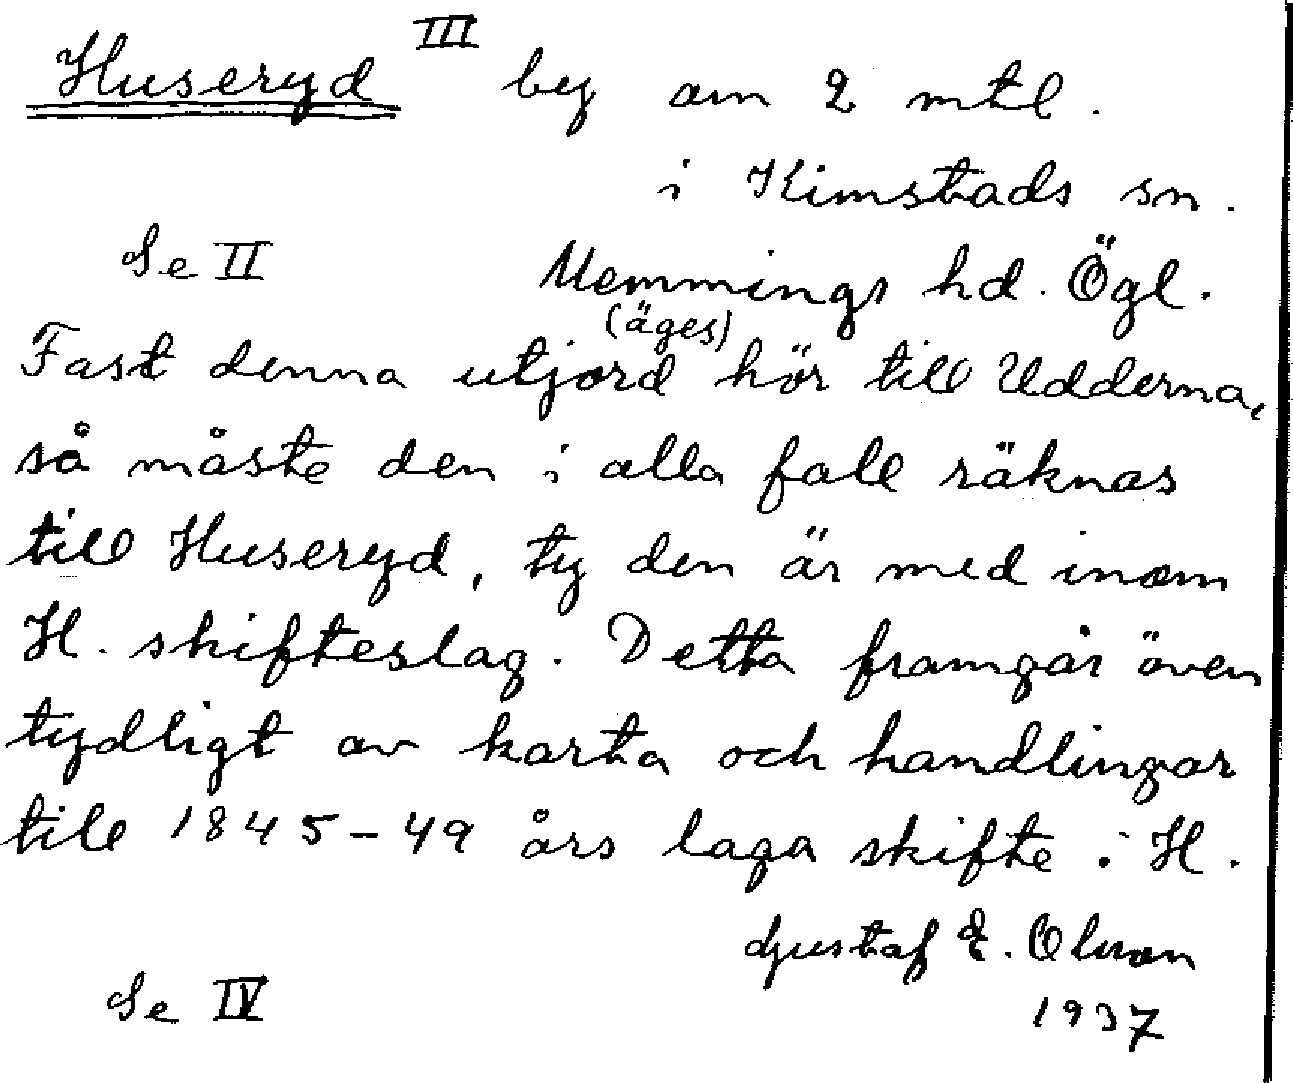 Huseryd III by om 2 mtl.
i Kimstads sn.
Se II Memmings hd. Ögl.
(äges)
Fast denna utjord hör till Udderna,
så måste den i alla fall räknas
till Huseryd, ty den är med inom
H. skifteslag. Detta framgår även
tydligt av karta och handlingar
till 1845-49 års laga skifte i H.
Gustaf E. Olsson
Se IV 1937